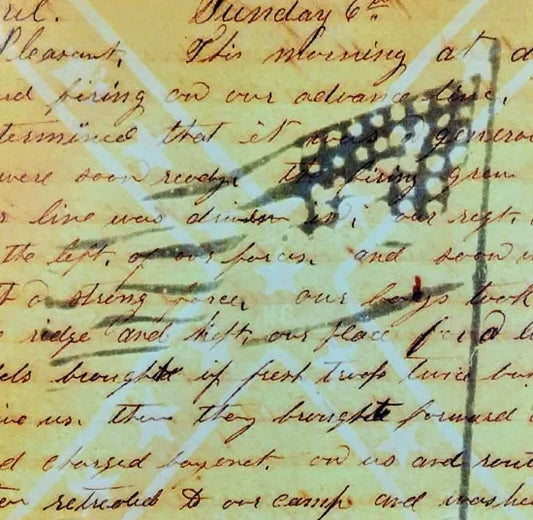 ril. Sunday 6th
Pleasant, This morning at d
ud firing on our advance line,
termined that it was a genera
were soon ready the firing grew
r line was driven in; our regt.
the left, of our forces, and soon
t a strong force our boys took
ridge and kept our place for a
els brought up fresh troops
ive us. then they brought forward
d charged bayonet. on us and rout
retreated to our camp and